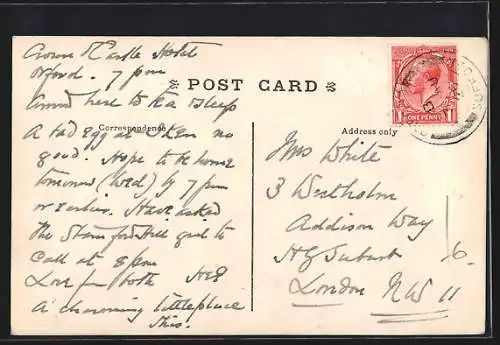 Crown & Castle Hotel
Orford. 7 pm
Arrived here to tea & sleep
POST CARD
Correspondence
Address only
A bad egg at
no
good. Hope to be home
tomorrow (Wed) by 7 pm
or earlier. Have asked
the Stamford Hill girl to
call at 8 pm
Love from both
A charming little place
this.
ONE PENNY
Mrs White
3 Westholm
Addison Way
HG Suburb
London NW 11